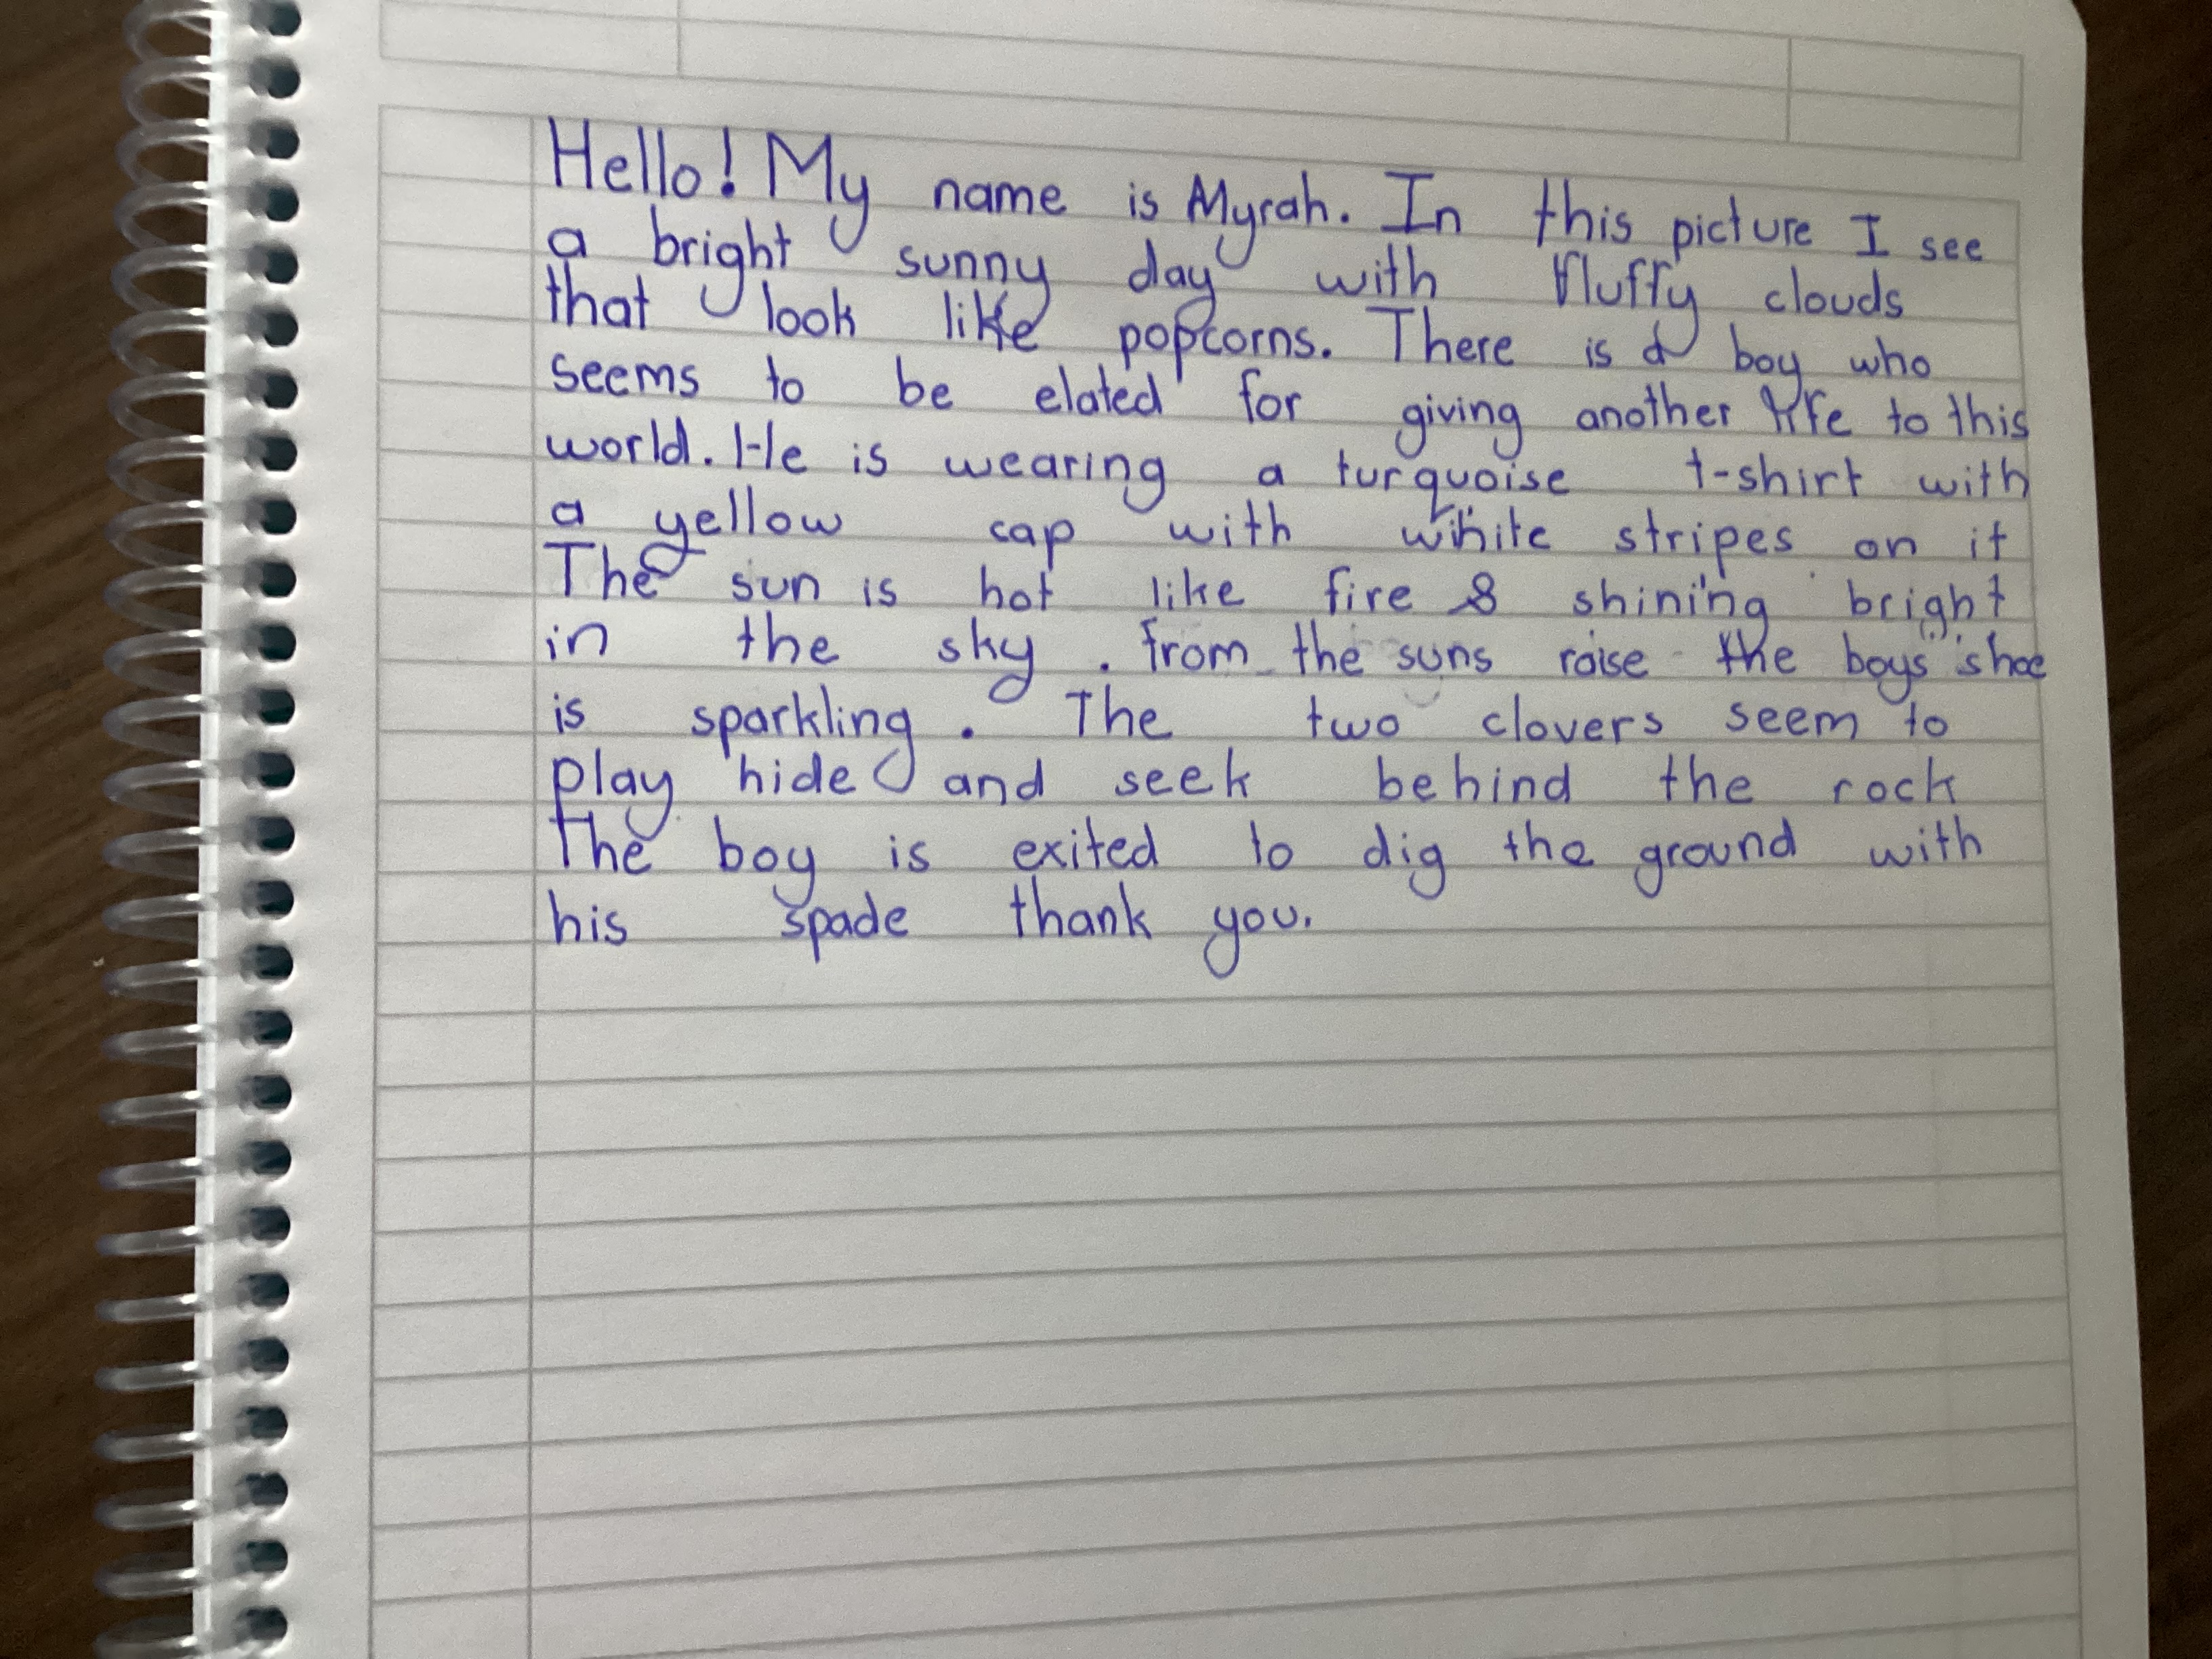 Hello! My name is Myrah. In this picture I see
a bright sunny day with fluffy clouds
that look like popcorns. There is a boy who
seems to be elated for giving another life to this
world. He is wearing a turquoise t-shirt with
a yellow cap with white stripes on it
The sun is hot like fire & shining bright
in the sky. from the suns raise the boys shoe
is sparkling. The two clovers seem to
play hide and seek behind the rock
The boy is exited to dig the ground with
his spade thank you.